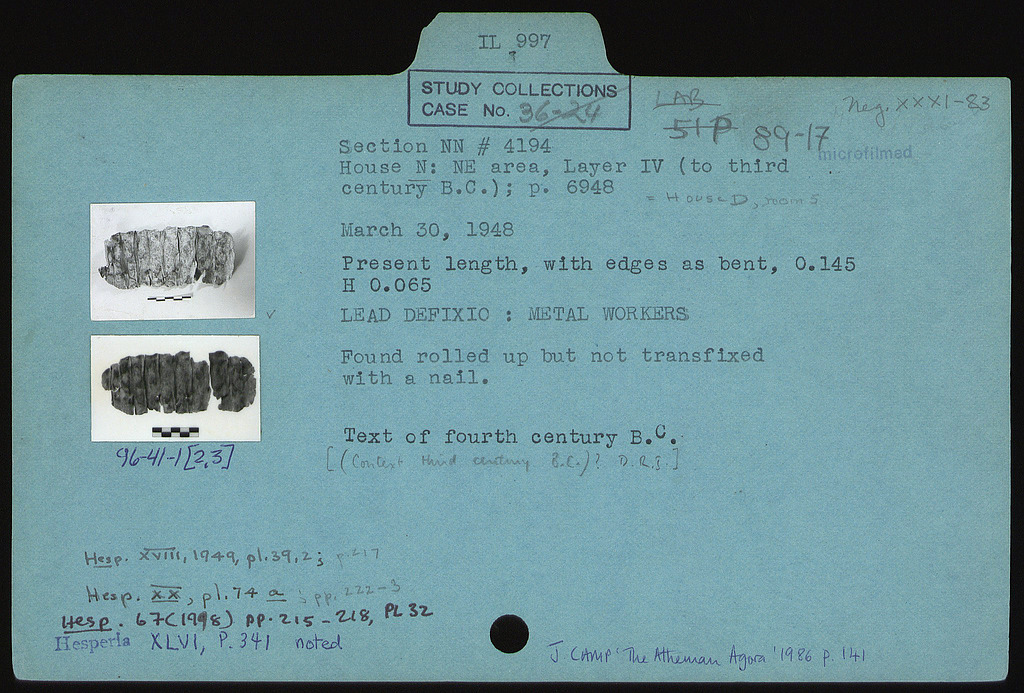 IL 997
STUDY COLLECTIONS
CASE No. 36-24
LAB
51P 89-17
Neg. XXXI-83
microfilmed
Section NN # 4194
House N: NE area, Layer IV (to third
century B.C.); p. 6948
= House D, room 5
March 30, 1948
Present length, with edges as bent, 0.145
H 0.065
LEAD DEFIXIO : METAL WORKERS
Found rolled up but not transfixed
with a nail.
Text of fourth century B.C.
[(Context third century B.C.)? D.B.T.]
96-41-1[2,3]
Hesp. XVIII, 1949, pl.39,2; p.217
Hesp. XX, pl.74 a ; pp. 222-3
Hesp. 67(1998) pp. 215-218, PL 32
Hesperia XLVI, P. 341 noted
J. CAMP 'The Athenian Agora' 1986 p. 141